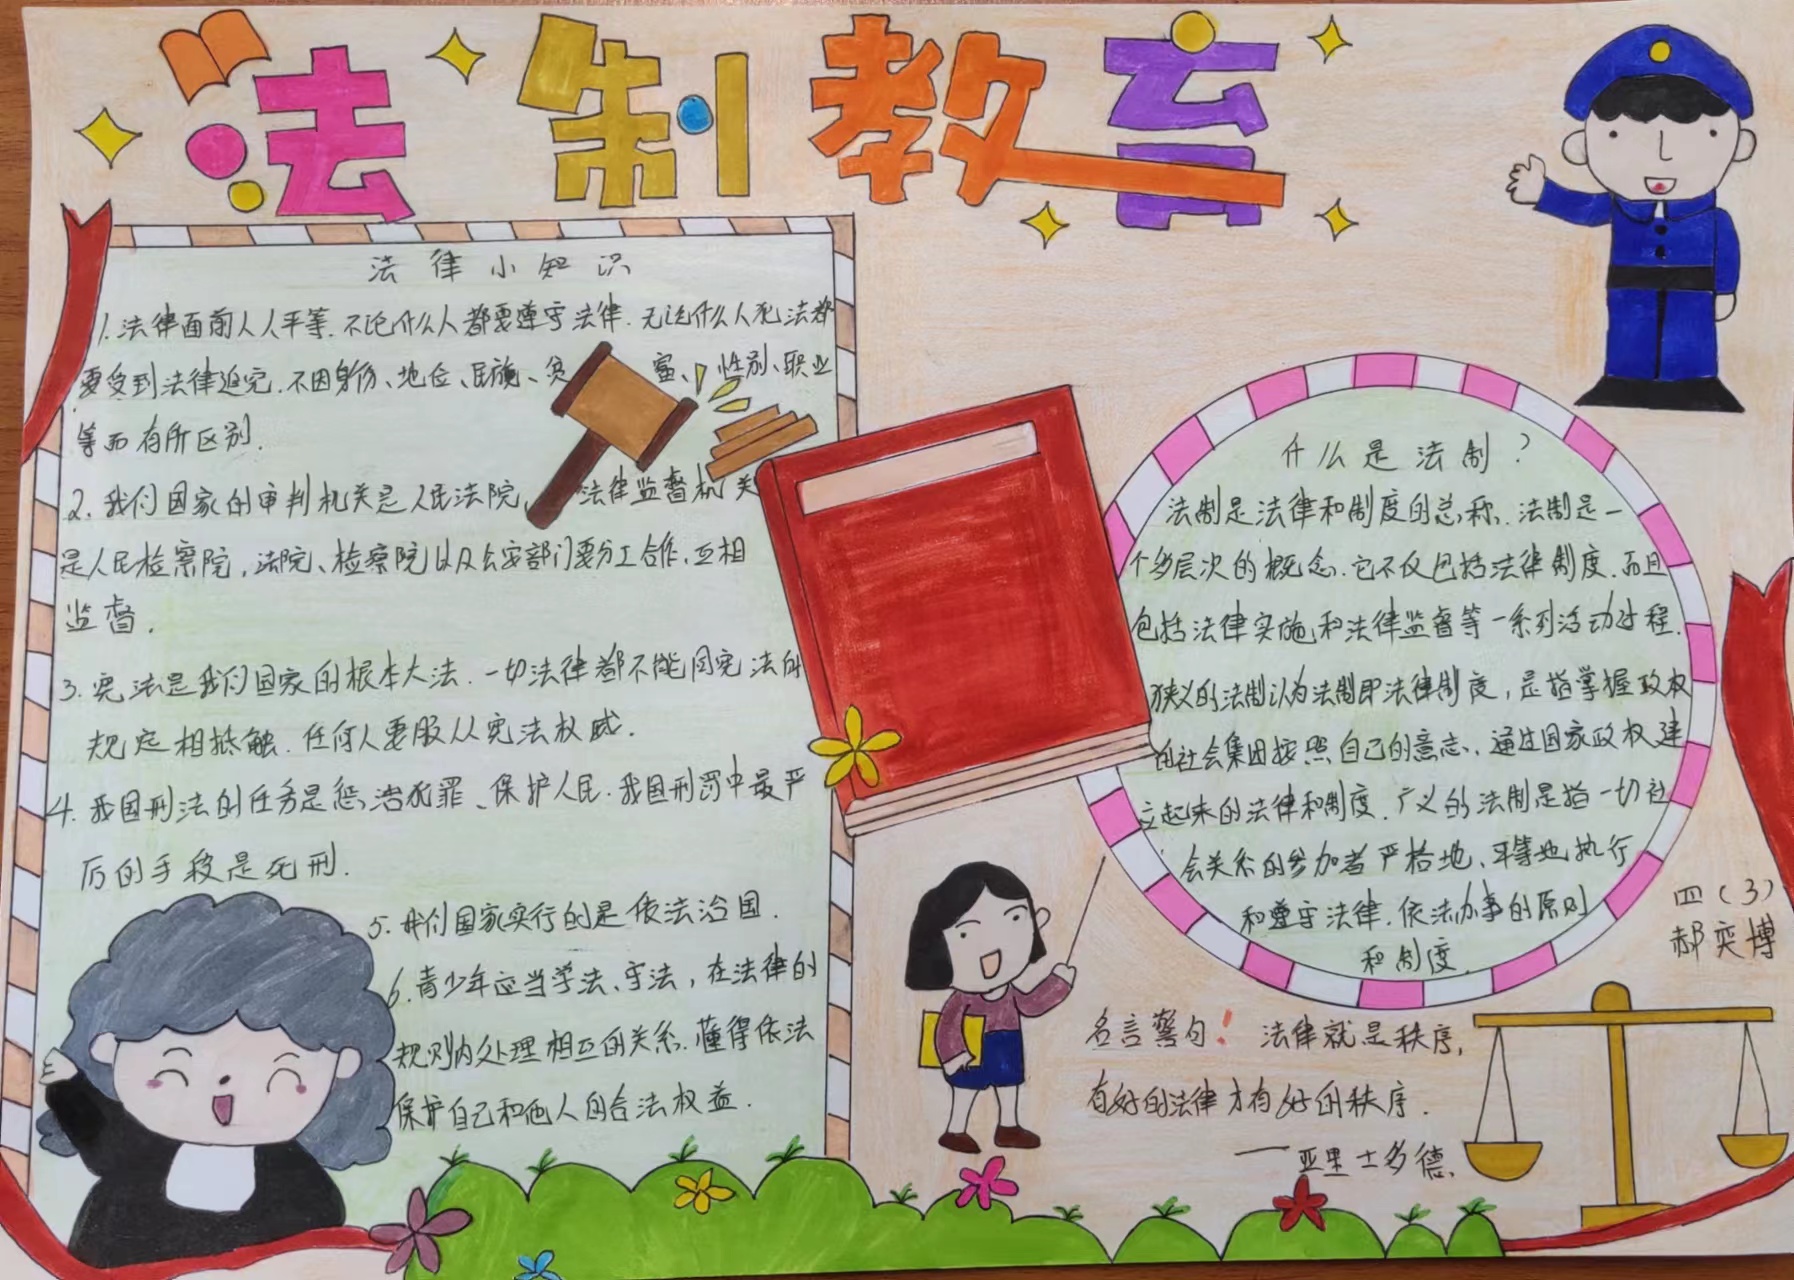 法制教育
法律小知识
1.法律面前人人平等.不论什么人都要遵守法律.无论什么人犯法都
要受到法律追究.不因身份、地位、民族、贫富、性别、职业
等而有所区别.
2.我们国家的审判机关是人民法院,法律监督机关
是人民检察院,法院、检察院以及公安部门要分工合作,互相
监督.
3.宪法是我们国家的根本大法.一切法律都不能同宪法的
规定相抵触.任何人要服从宪法权威.
4.我国刑法的任务是惩治犯罪、保护人民.我国刑罚中最严
厉的手段是死刑.
5.我们国家实行的是依法治国.
6.青少年应当学法、守法,在法律的
规则内处理相互的关系.懂得依法
保护自己和他人的合法权益.
什么是法制?
法制是法律和制度的总称.法制是一
个多层次的概念.它不仅包括法律制度.而且
包括法律实施和法律监督等一系列活动过程.
狭义的法制认为法制即法律制度,是指掌握政权
的社会集团按照自己的意志,通过国家政权建
立起来的法律和制度.广义的法制是指一切社
会关系的参加者严格地、平等地执行
和遵守法律.依法办事的原则
和制度.
四(3)
郝奕博
名言警句!法律就是秩序,
有好的法律才有好的秩序.
——亚里士多德.